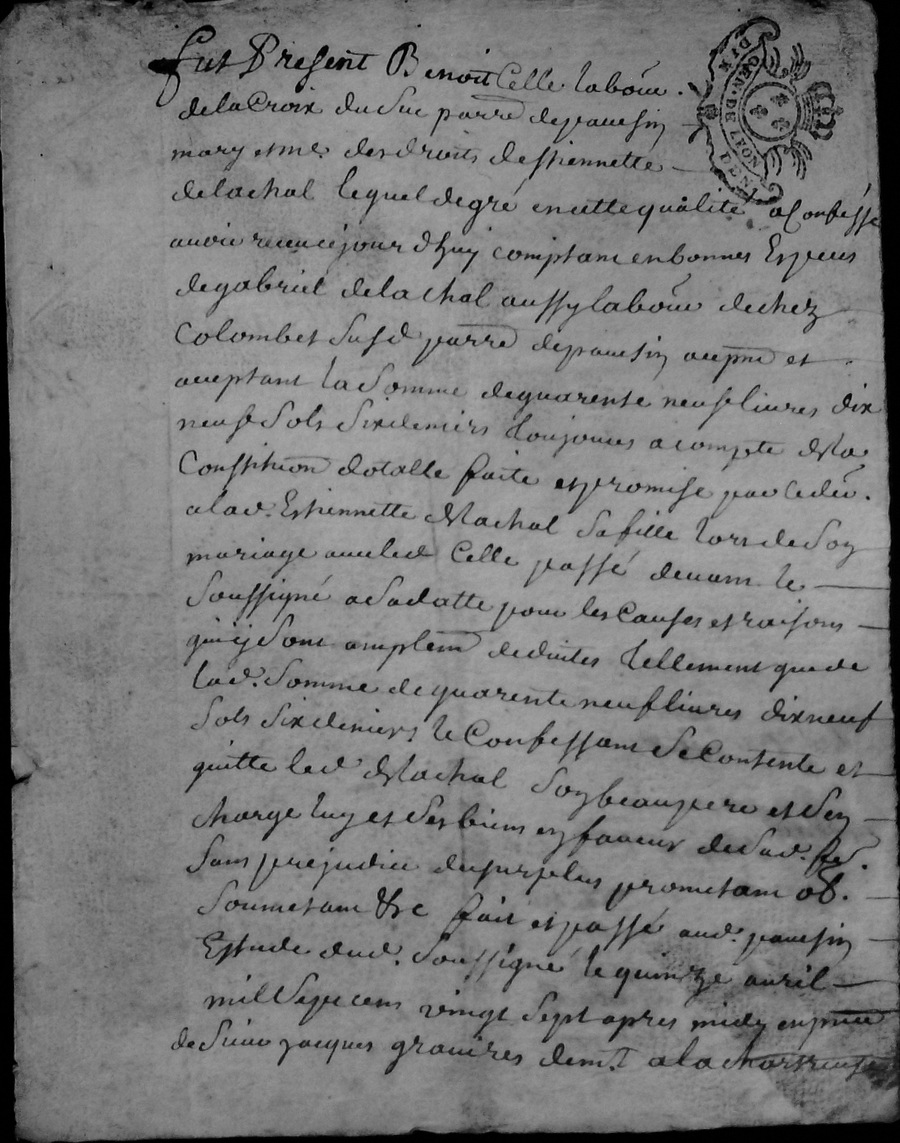 fut Present Benoit Celle labour.
de la Croix du Suc parre de pauesin
mary et me des droits destiennette
delachal lequel de gré en cette qualité a Confessé
avoir receu ce jour dhuy comptant en bonnes Especes
de gabriel delachal aussy labour de chez
Colombet susd parre de pauesin acepnt et
aceptant la Somme de quarente neuf liures dix
neuf Sols Six deniers toujours a compte de la
Constitution dotalle faite et promise par ledit.
a lad. Estiennette delachal Sa fille lors de Son
mariage avec led Celle passé devant le
Soussigné a Sa datte pour les Causes et raisons
qui y Sont amplemt deduites tellement que de
lad. Somme de quarente neuf liures dix neuf
Sols Six deniers le Confessant Se Contente et
quitte led delachal Son beaupere et Sen
charge luy et Ses biens en faueur de Sad. fe.
Sans prejudice du surplus prometant ob.
Soumetant &c fait et passé aud. pauesin
Estude dud. Soussigné le quinze auril
mil Sept cens vingt Sept apres midy en pnce
de Sieur jacques grauires demt. a la chartreuse
GEN. DE LYON